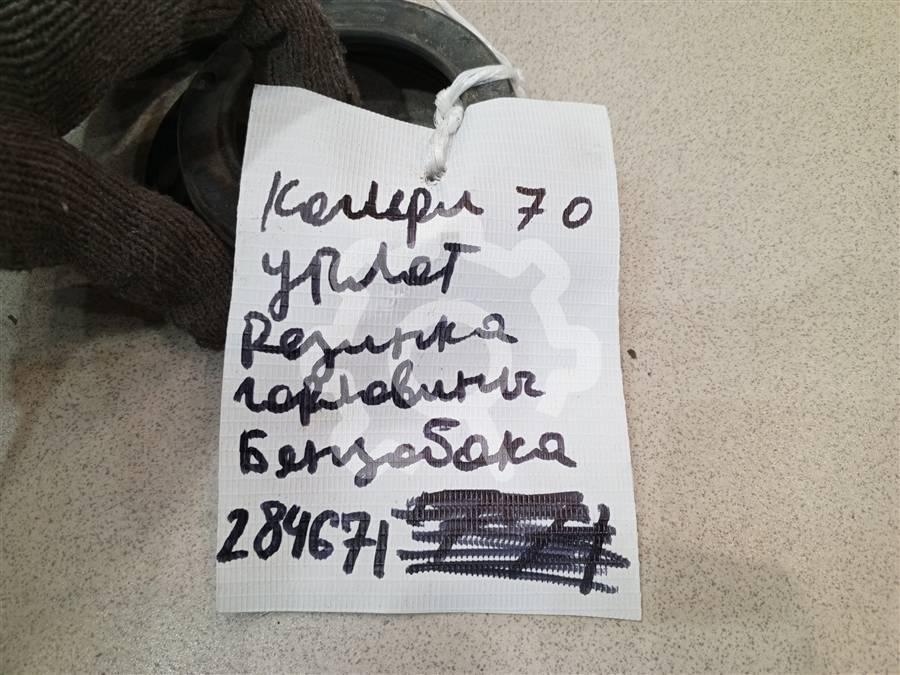 Камери 70
уплот
Резинка
горловины
Бензобака
284671